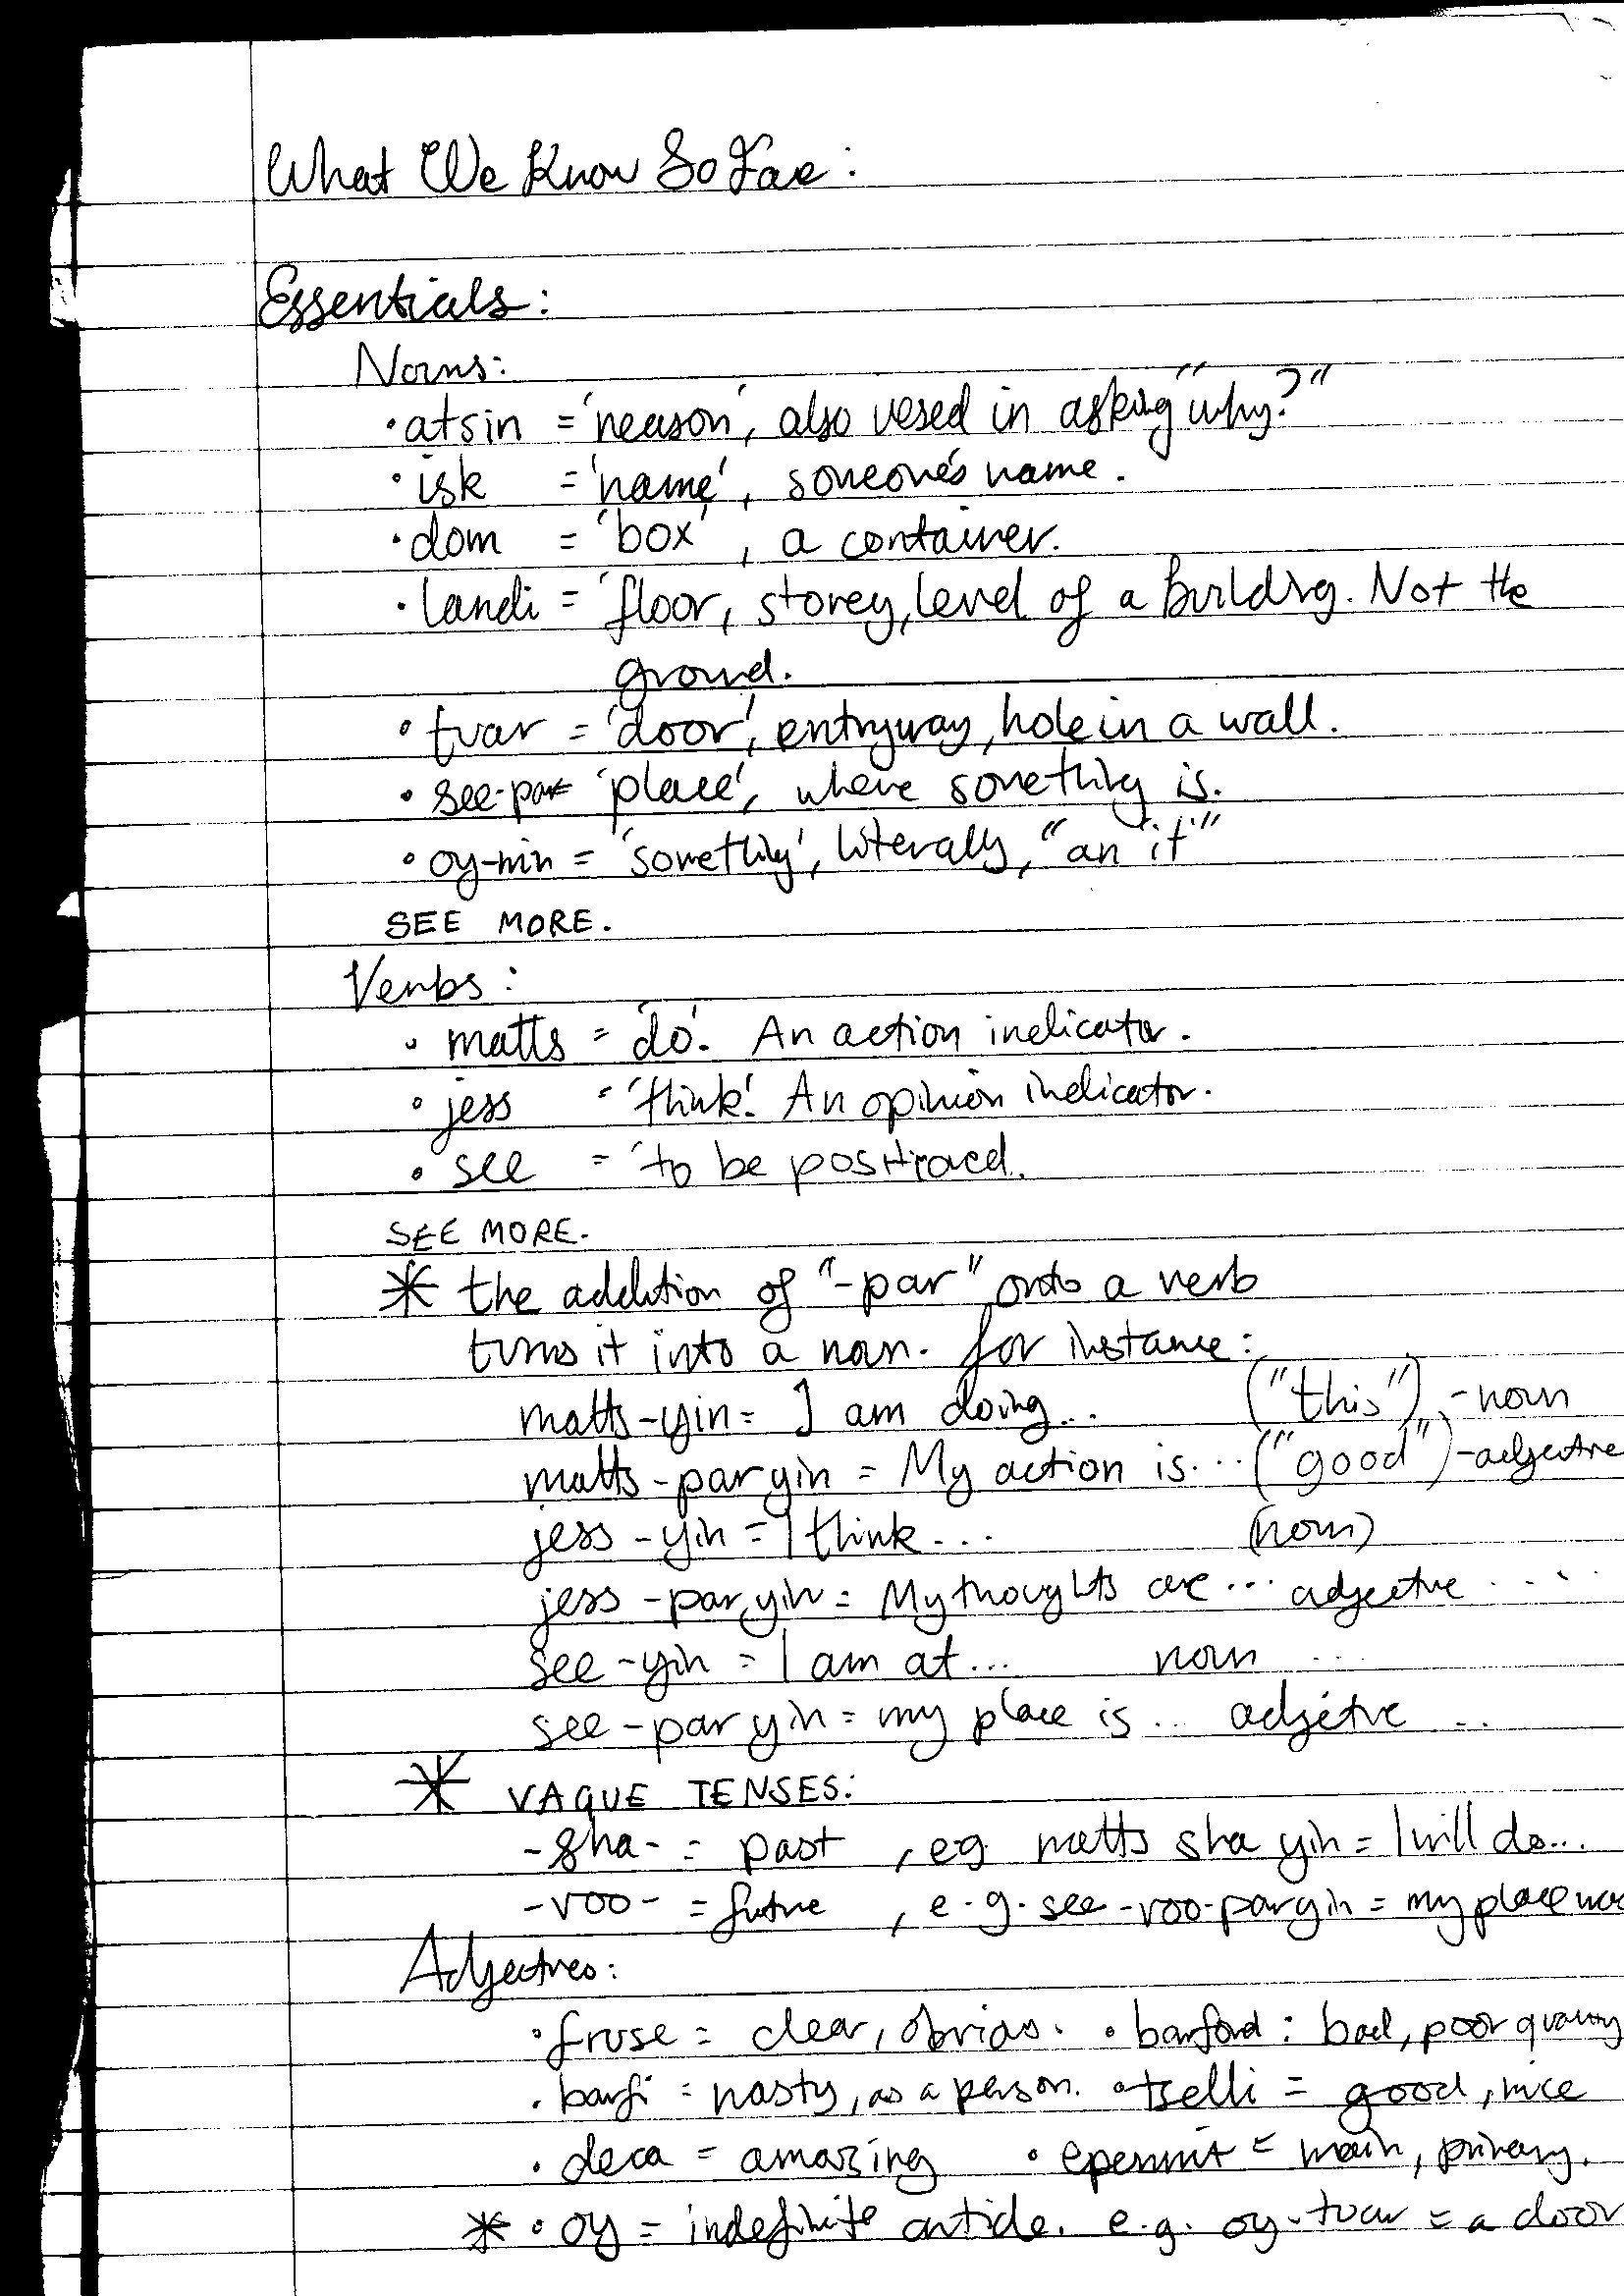 What We Know So Far:
Essentials:
Nouns:
• atsin = 'reason', also used in asking "why?"
• isk = 'name', someone's name.
• dom = 'box', a container.
• landi = 'floor, storey, level of a building. Not the
ground.
• tvar = 'door', entryway, hole in a wall.
• see-par = 'place', where something is.
• oy-nin = 'something', literally, "an 'it'"
SEE MORE.
Verbs:
• matts = 'do'. An action indicator.
• jess = 'think'. An opinion indicator.
• see = 'to be positioned.
SEE MORE.
* the addition of "-par" onto a verb
turns it into a noun. for instance:
matts-yin = I am doing... ("this") -noun
matts-par yin = My action is... ("good") -adjective
jess-yin = I think... (noun)
jess-par yin = My thoughts are... adjective ....
see-yin = I am at... noun ...
see-par yin = my place is... adjective ..
* VAGUE TENSES:
-sha- = past, eg. matts sha yin = I will do...
-voo- = future, e.g. see-voo-par yin = my place
Adjectives:
• fruse = clear, obvious. • barford: bad, poor quality
• barfi = nasty, as a person. • tselli = good, nice
• deca = amazing • epermit = main, primary.
* • oy = indefinite article. e.g. oy-tvar = a door